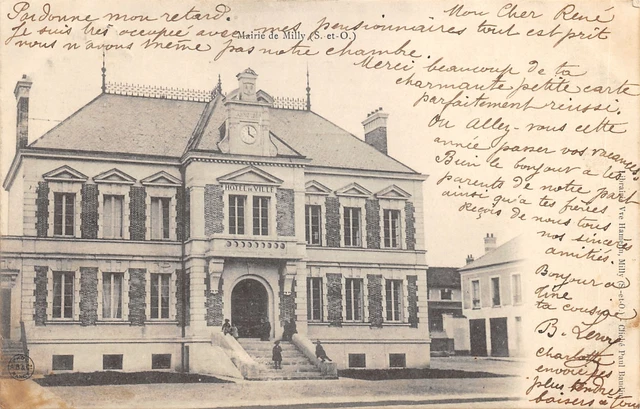 Pardonne mon retard.
Je suis très occupée avec mes pensionnaires tout est prit
nous n'avons même pas notre chambre.
Mairie de Milly (S. et-O.)
Mon Cher René
Merci beaucoup de ta
charmante petite carte
parfaitement réussi.
Ou allez-vous cette
année passer vos vacances
Bien le bonjour à tes
parents de notre part
ainsi qu'à tes frères.
Reçois de nous tous
nos sincères
amitiés.
Bonjour à
Line
ta cousine
B. Leroy
Charlotte
envoie ses
plus tendres
baisers à tous
HOTEL DE VILLE
Librairie Vve Milly (S.-et-O.) Cliché Paul